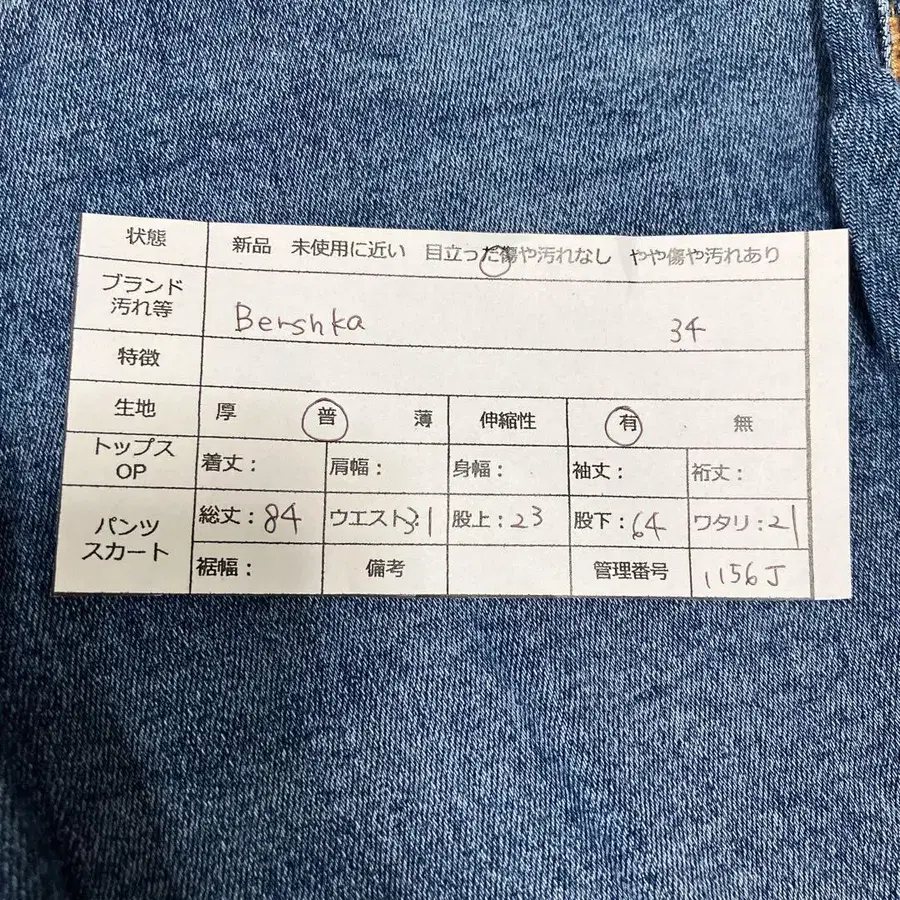 状態 新品 未使用に近い 目立った傷や汚れなし やや傷や汚れあり
ブランド
汚れ等 Bershka 34
特徴
生地 厚 普 薄 伸縮性 有 無
トップス
OP 着丈： 肩幅： 身幅： 袖丈： 裄丈：
パンツ
スカート 総丈：84 ウエスト：31 股上：23 股下：64 ワタリ：21
裾幅： 備考 管理番号 1156J